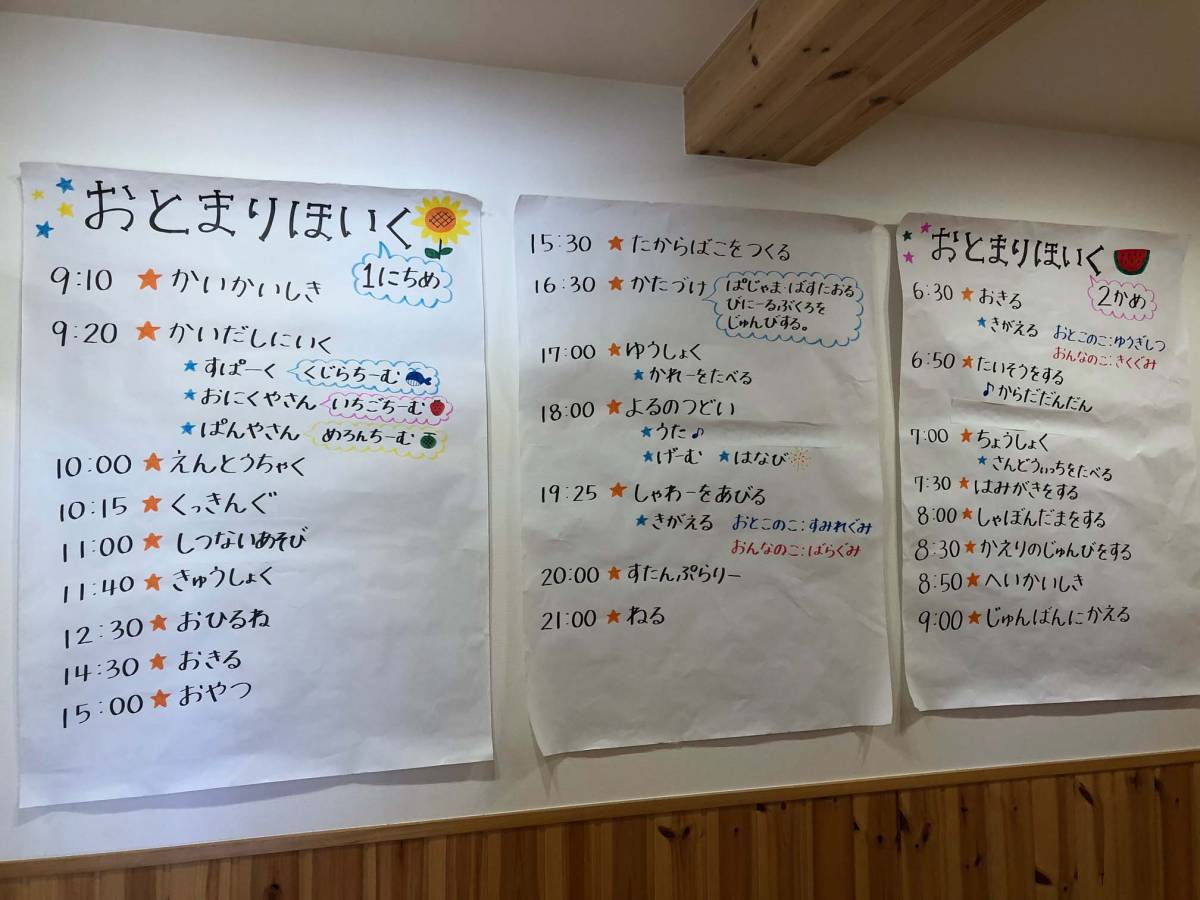 おとまりほいく
1にちめ
9:10 ★ かいかいしき
9:20 ★ かいだしにいく
★ すぱーく くじらちーむ
★ おにくやさん いちごちーむ
★ ぱんやさん めろんちーむ
10:00 ★ えんとうちゃく
10:15 ★ くっきんぐ
11:00 ★ しつないあそび
11:40 ★ きゅうしょく
12:30 ★ おひるね
14:30 ★ おきる
15:00 ★ おやつ
15:30 ★ たからばこをつくる
16:30 ★ かたづけ
ぱじゃま・ばすたおる
びにーるぶくろを
じゅんびする。
17:00 ★ ゆうしょく
★ かれーをたべる
18:00 ★ よるのつどい
★ うた♪
★ げーむ ★ はなび
19:25 ★ しゃわーをあびる
★ きがえる おとこのこ:すみれぐみ
おんなのこ:ばらぐみ
20:00 ★ すたんぷらりー
21:00 ★ ねる
おとまりほいく
2かめ
6:30 ★ おきる
★ きがえる おとこのこ:ゆうぎしつ
おんなのこ:きくぐみ
6:50 ★ たいそうをする
♪ からだだんだん
7:00 ★ ちょうしょく
★ さんどうぃっちをたべる
7:30 ★ はみがきをする
8:00 ★ しゃぼんだまをする
8:30 ★ かえりのじゅんびをする
8:50 ★ へいかいしき
9:00 ★ じゅんばんにかえる